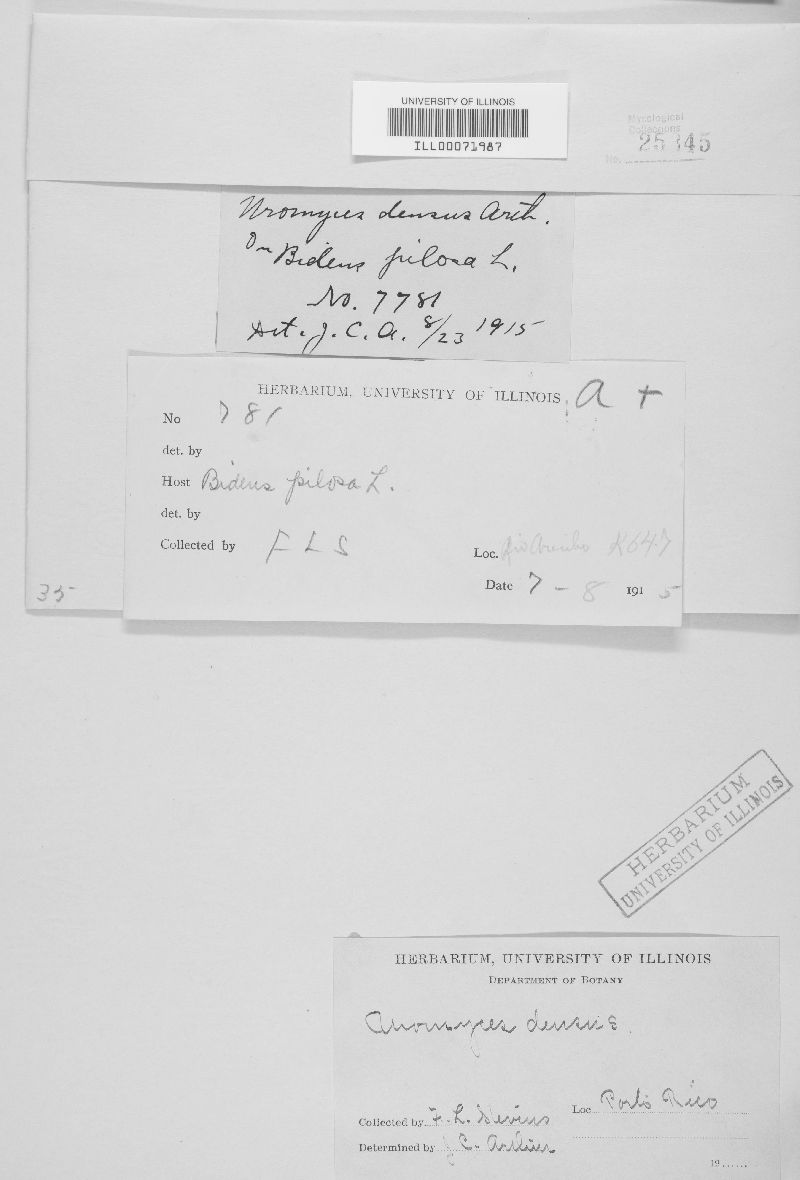 UNIVERSITY OF ILLINOIS
ILL00071987
Mycological
Collections
No. 25345
Uromyces densus Arth.
On Bidens pilosa L.
No. 7781
Det. J. C. A. 8/23 1915
HERBARIUM, UNIVERSITY OF ILLINOIS, a +
No 781
det. by
Host Bidens pilosa L.
det. by
Collected by F L S
Loc. Rio Arecibo K647
Date 7 - 8 1915
35
HERBARIUM
UNIVERSITY OF ILLINOIS
HERBARIUM, UNIVERSITY OF ILLINOIS
DEPARTMENT OF BOTANY
Uromyces densus.
Loc. Porto Rico
Collected by F. L. Stevens
Determined by J. C. Arthur
19......